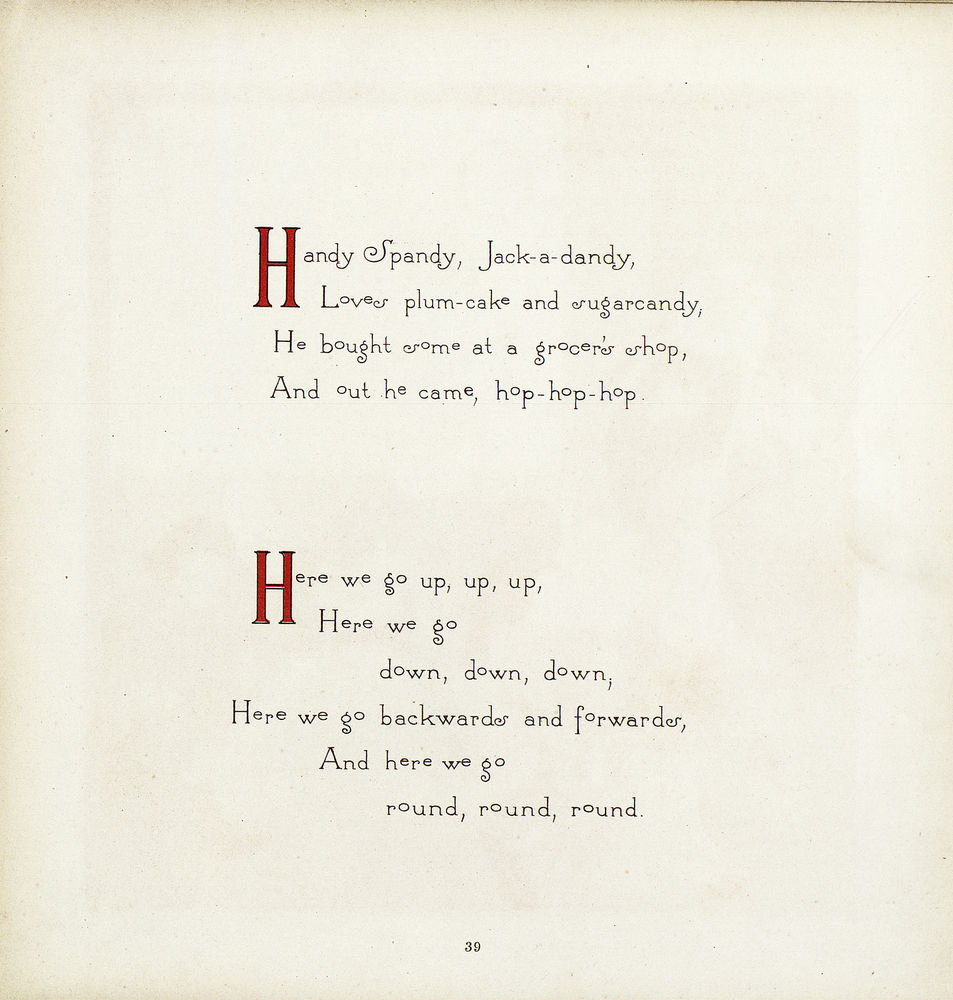 Handy Spandy, Jack-a-dandy,
Loves plum-cake and sugarcandy;
He bought some at a grocer's shop,
And out he came, hop-hop-hop.
Here we go up, up, up,
Here we go
down, down, down;
Here we go backwards and forwards,
And here we go
round, round, round.
39